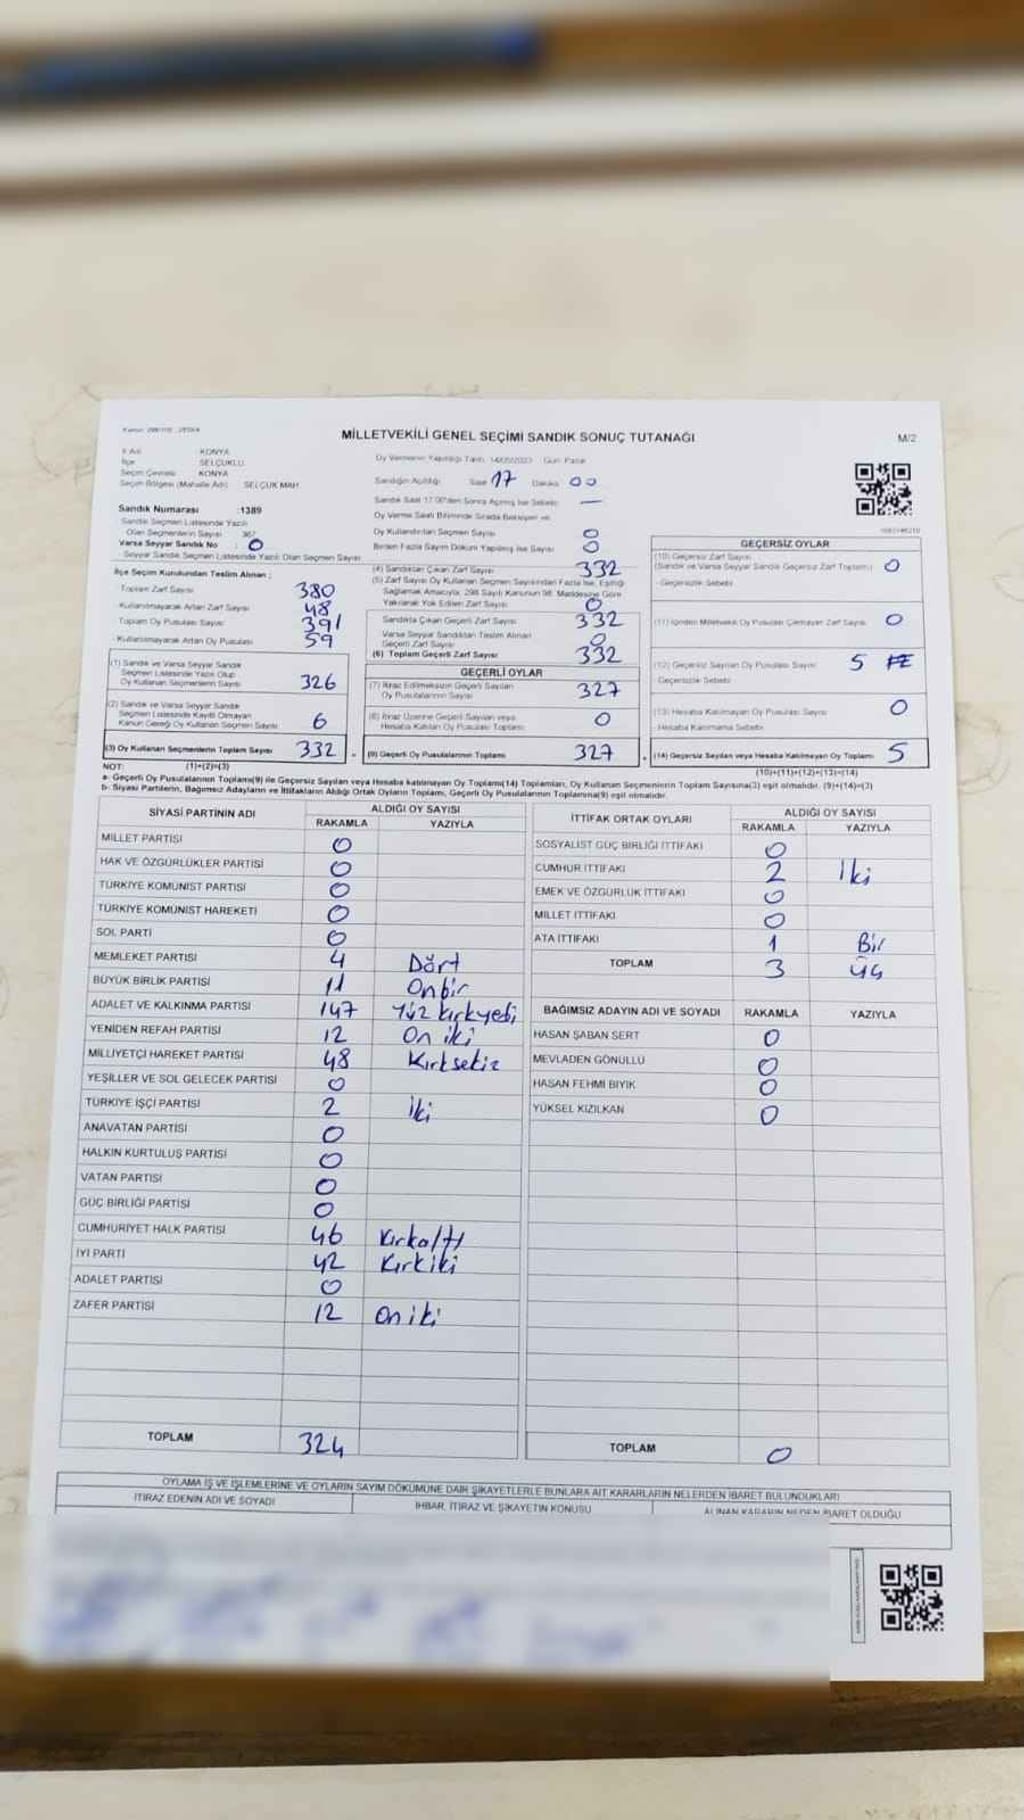 MİLLETVEKİLİ GENEL SEÇİMİ SANDIK SONUÇ TUTANAĞI
M/2
İl Adı KONYA
İlçe SELÇUKLU
Seçim Çevresi KONYA
Seçim Bölgesi (Mahalle Adı) SELÇUK MAH.
Sandık Numarası :1389
Sandık Seçmen Listesinde Yazılı
Olan Seçmenlerin Sayısı 367
Varsa Seyyar Sandık No : 0
Seyyar Sandık Seçmen Listesinde Yazılı Olan Seçmen Sayısı
İlçe Seçim Kurulundan Teslim Alınan ;
Toplam Zarf Sayısı 380
Kullanılmayarak Artan Zarf Sayısı 48
Toplam Oy Pusulası Sayısı 391
Kullanılmayarak Artan Oy Pusulası 59
(1) Sandık ve Varsa Seyyar Sandık
Seçmen Listesinde Yazılı Olup
Oy Kullanan Seçmenlerin Sayısı 326
(2) Sandık ve Varsa Seyyar Sandık
Seçmen Listesinde Kayıtlı Olmayan
Kanun Gereği Oy Kullanan Seçmen Sayısı 6
(3) Oy Kullanan Seçmenlerin Toplam Sayısı 332
(1)+(2)=(3)
Oy Vermenin Yapıldığı Tarih 14/05/2023 Gün Pazar
Sandığın Açıldığı Saat 17 Dakika 00
Sandık Saat 17:00'den Sonra Açılmış İse Sebebi —
Oy Verme Saati Bitiminde Sırada Bekleyen ve
Oy Kullandırılan Seçmen Sayısı 0
Birden Fazla Sayım Döküm Yapılmış İse Sayısı 0
(4) Sandıktan Çıkan Zarf Sayısı 332
(5) Zarf Sayısı Oy Kullanan Seçmen Sayısından Fazla İse, Eşitliği
Sağlamak Amacıyla, 298 Sayılı Kanunun 98. Maddesine Göre
Yakılarak Yok Edilen Zarf Sayısı 0
Sandıkta Çıkan Geçerli Zarf Sayısı 332
Varsa Seyyar Sandıktan Teslim Alınan
Geçerli Zarf Sayısı 0
(6) Toplam Geçerli Zarf Sayısı 332
GEÇERLİ OYLAR
(7) İtiraz Edilmeksizin Geçerli Sayılan
Oy Pusulalarının Sayısı 327
(8) İtiraz Üzerine Geçerli Sayılan veya
Hesaba Katılan Oy Pusulası Toplamı 0
(9) Geçerli Oy Pusulalarının Toplamı 327
GEÇERSİZ OYLAR
(10) Geçersiz Zarf Sayısı
(Sandık ve Varsa Seyyar Sandık Geçersiz Zarf Toplamı) 0
Geçersizlik Sebebi
(11) İçinden Milletvekili Oy Pusulası Çıkmayan Zarf Sayısı 0
(12) Geçersiz Sayılan Oy Pusulası Sayısı 5
Geçersizlik Sebebi
(13) Hesaba Katılmayan Oy Pusulası Sayısı 0
Hesaba Katılmama Sebebi
(14) Geçersiz Sayılan veya Hesaba Katılmayan Oy Toplamı 5
(10)+(11)+(12)+(13)=(14)
NOT:
a- Geçerli Oy Pusulalarının Toplamı(9) ile Geçersiz Sayılan veya Hesaba katılmayan Oy Toplamı(14) Toplamları, Oy Kullanan Seçmenlerin Toplam Sayısına(3) eşit olmalıdır. (9)+(14)=(3)
b- Siyasi Partilerin, Bağımsız Adayların ve İttifakların Aldığı Ortak Oyların Toplamı, Geçerli Oy Pusulalarının Toplamına(9) eşit olmalıdır.
SİYASİ PARTİNİN ADI ALDIĞI OY SAYISI
RAKAMLA YAZIYLA
MİLLET PARTİSİ 0
HAK VE ÖZGÜRLÜKLER PARTİSİ 0
TÜRKİYE KOMÜNİST PARTİSİ 0
TÜRKİYE KOMÜNİST HAREKETİ 0
SOL PARTİ 0
MEMLEKET PARTİSİ 4 Dört
BÜYÜK BİRLİK PARTİSİ 11 Onbir
ADALET VE KALKINMA PARTİSİ 147 Yüz kırkyedi
YENİDEN REFAH PARTİSİ 12 On iki
MİLLİYETÇİ HAREKET PARTİSİ 48 Kırksekiz
YEŞİLLER VE SOL GELECEK PARTİSİ 0
TÜRKİYE İŞÇİ PARTİSİ 2 iki
ANAVATAN PARTİSİ 0
HALKIN KURTULUŞ PARTİSİ 0
VATAN PARTİSİ 0
GÜÇ BİRLİĞİ PARTİSİ 0
CUMHURİYET HALK PARTİSİ 46 Kırkaltı
İYİ PARTİ 42 Kırkiki
ADALET PARTİSİ 0
ZAFER PARTİSİ 12 On iki
TOPLAM 324
İTTİFAK ORTAK OYLARI ALDIĞI OY SAYISI
RAKAMLA YAZIYLA
SOSYALİST GÜÇ BİRLİĞİ İTTİFAKI 0
CUMHUR İTTİFAKI 2 İki
EMEK VE ÖZGÜRLÜK İTTİFAKI 0
MİLLET İTTİFAKI 0
ATA İTTİFAKI 1 Bir
TOPLAM 3 Üç
BAĞIMSIZ ADAYIN ADI VE SOYADI RAKAMLA YAZIYLA
HASAN ŞABAN SERT 0
MEVLADEN GÖNÜLLÜ 0
HASAN FEHMİ BIYIK 0
YÜKSEL KIZILKAN 0
TOPLAM 0
OYLAMA İŞ VE İŞLEMLERİNE VE OYLARIN SAYIM DÖKÜMÜNE DAİR ŞİKAYETLERLE BUNLARA AİT KARARLARIN NELERDEN İBARET BULUNDUKLARI
İTİRAZ EDENİN ADI VE SOYADI İHBAR, İTİRAZ VE ŞİKAYETİN KONUSU ALINAN KARARIN NEDEN İBARET OLDUĞU